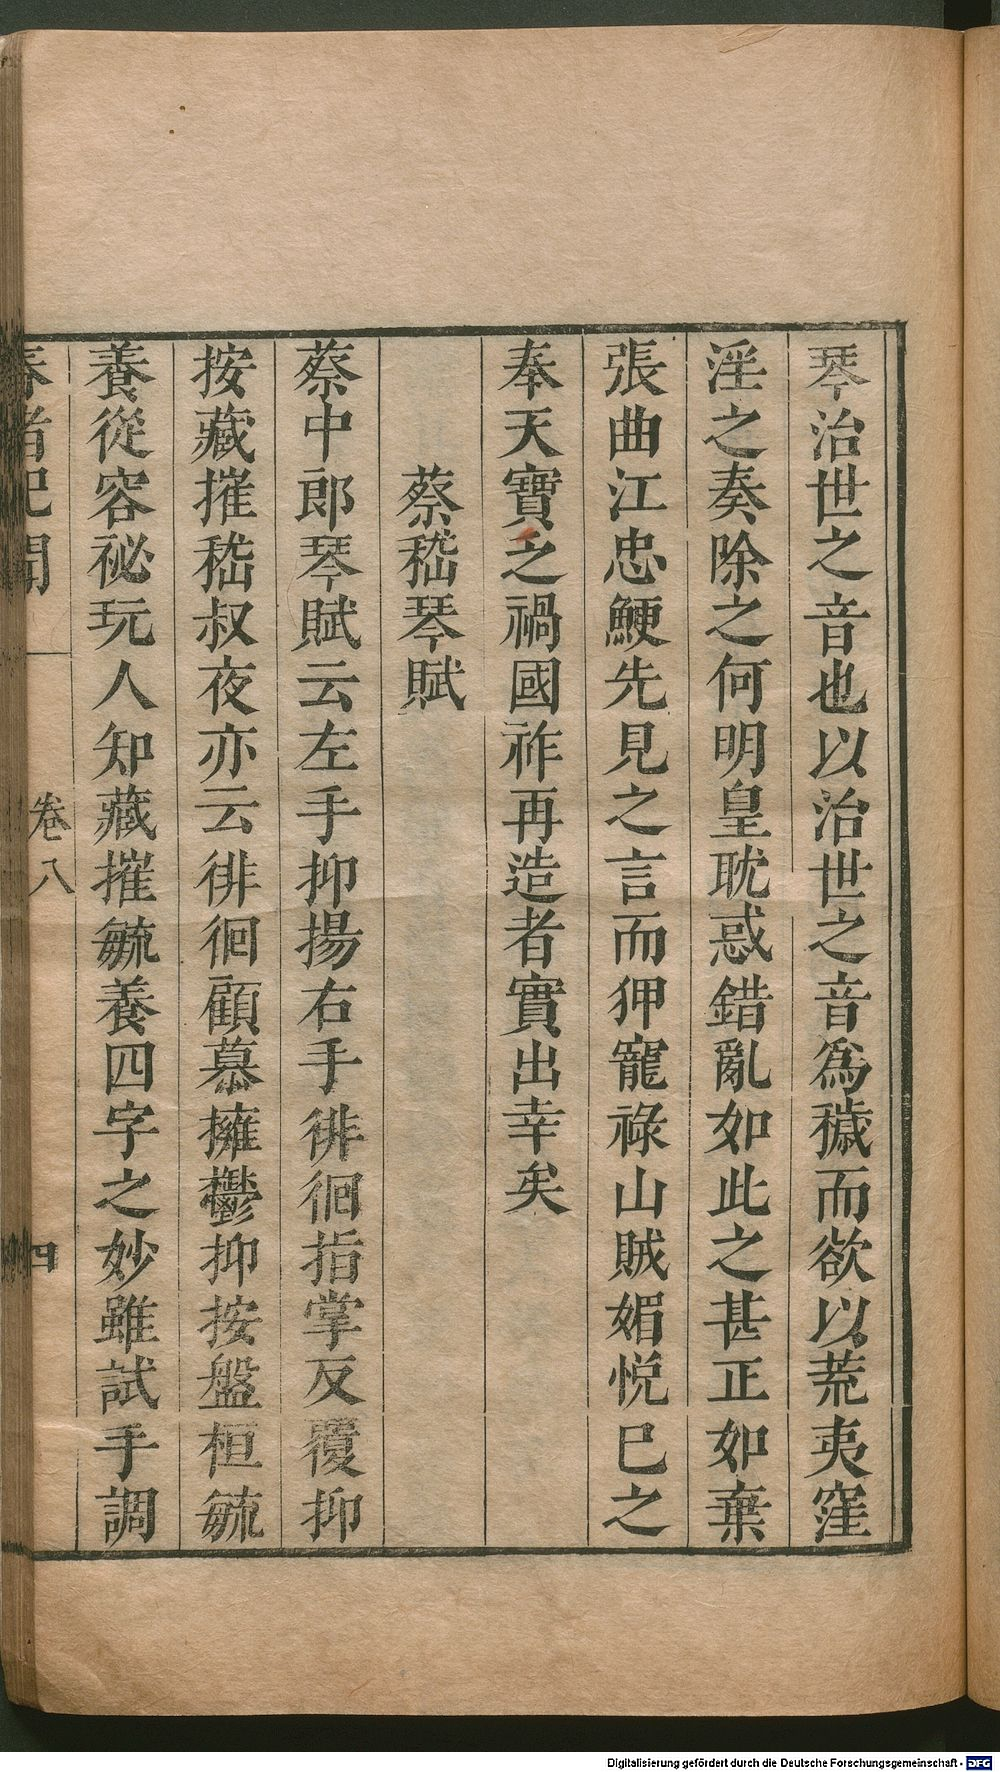 琴治世之音也以治世之音爲穢而欲以荒夷窪
淫之奏除之何明皇耽惑錯亂如此之甚正如棄
張曲江忠鯁先見之言而狎寵祿山賊媚悅已之
奉天寶之禍國祚再造者實出幸矣
蔡嵇琴賦
蔡中郎琴賦云左手抑揚右手徘徊指掌反覆抑
按藏摧嵇叔夜亦云徘徊顧慕擁鬱抑按盤桓毓
養從容祕玩人知藏摧毓養四字之妙雖試手調
春渚紀聞
卷八
四
Digitalisierung gefördert durch die Deutsche Forschungsgemeinschaft - DFG